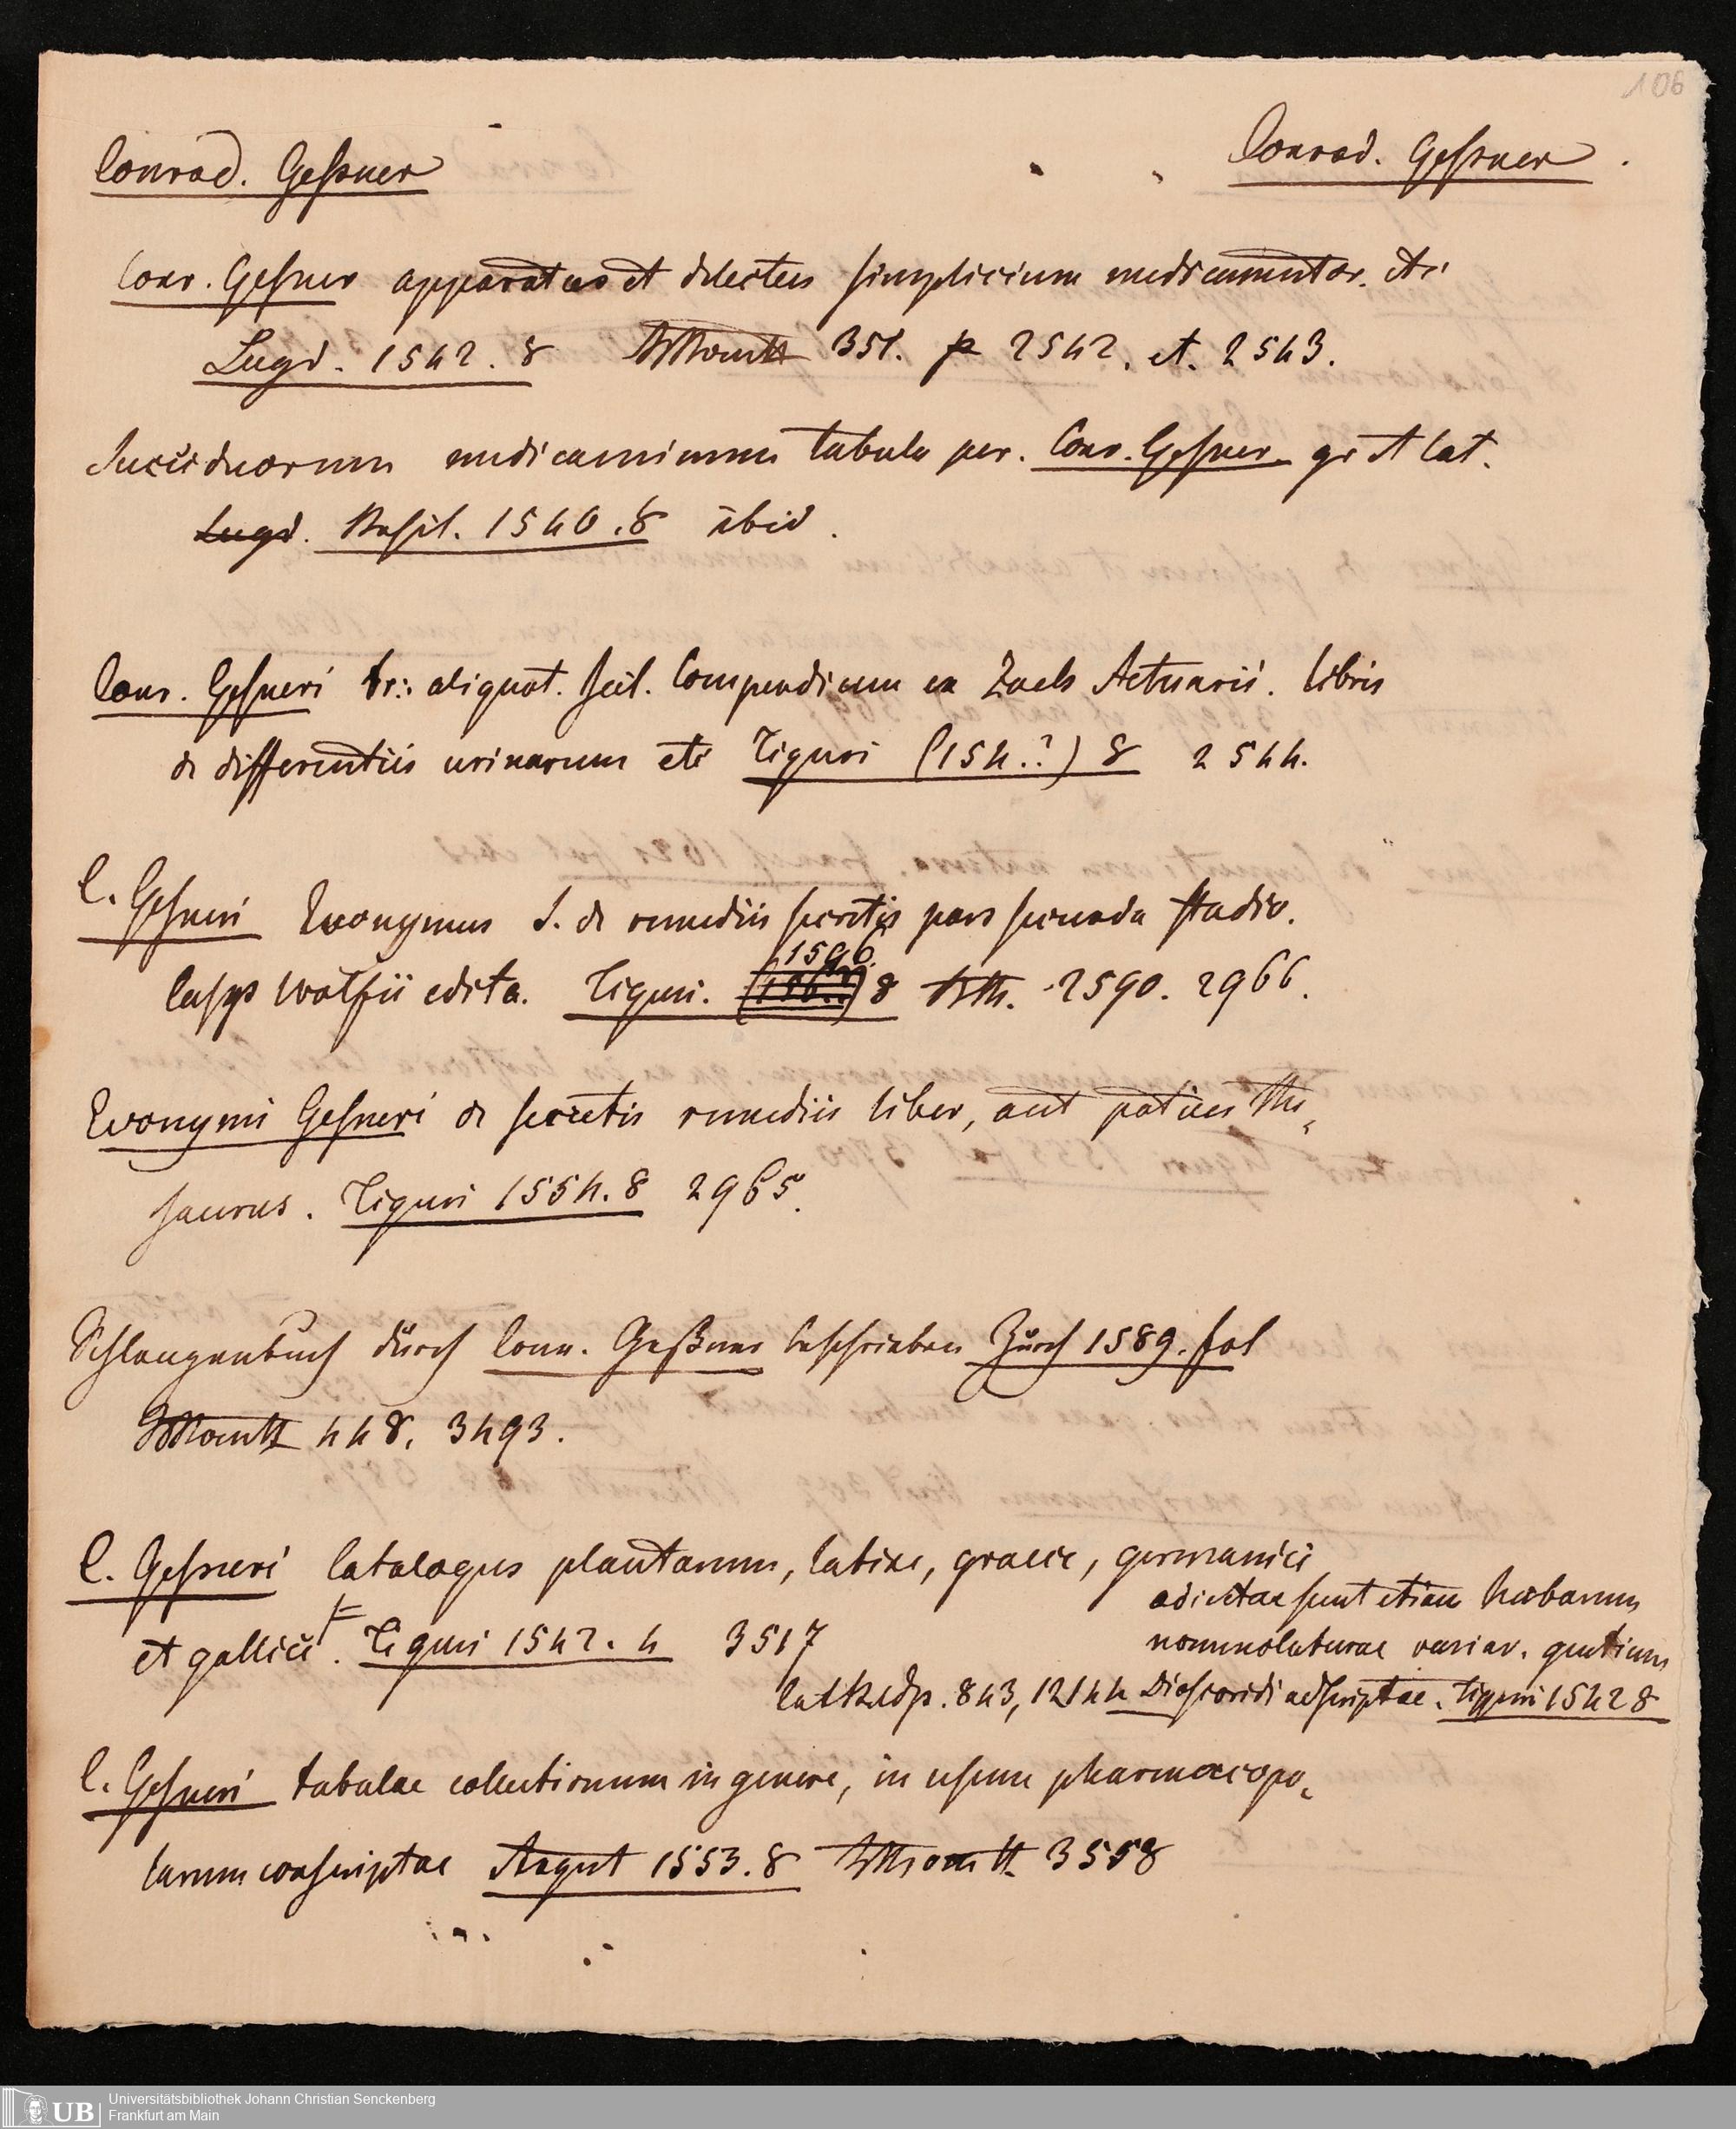 106
Conrad. Geßner
Conrad. Geßner.
Conr. Geßner apparatus et delectus simplicium medicamentor. etc
Lugd. 1542. 8 351. p 2542. et. 2543.
Succiduorum medicaminum tabula per. Conr. Gesner gr et lat.
Lugd. Basil. 1540. 8 ibid.
Conr. Gesneri aliquot. scil. Compendium ex Zach Actuarii. libris
de differentiis urinarum etc Tiguri (154.?) 8 2544.
C. Gesneri Evonymus s. de remediis secretis pars secunda studio.
1596.
Casps Wolfii edita. Tiguri. 8 Bth. 2590. 2966.
Evonymi Gesneri de secretis remediis liber, aut potius The-
saurus. Tiguri 1554. 8 2965.
Schlangenbuch durch Conr. Geßner beschrieben Zürch 1589. fol
448. 3493.
C. Gesneri Catalogus plantarum, latine, graece, germanice
adiectae sunt etiam herbarum
et gallice. Tiguri 1542. 4 3517
nomenclaturae variar. gentium
843, 12144 Dioscoridi adscriptae. Tiguri 1542 8
C. Gesneri tabulae collectionum in genere, in usum pharmacopo-
larum conscriptae Argent 1553. 8 3558
UB
Universitätsbibliothek Johann Christian Senckenberg
Frankfurt am Main